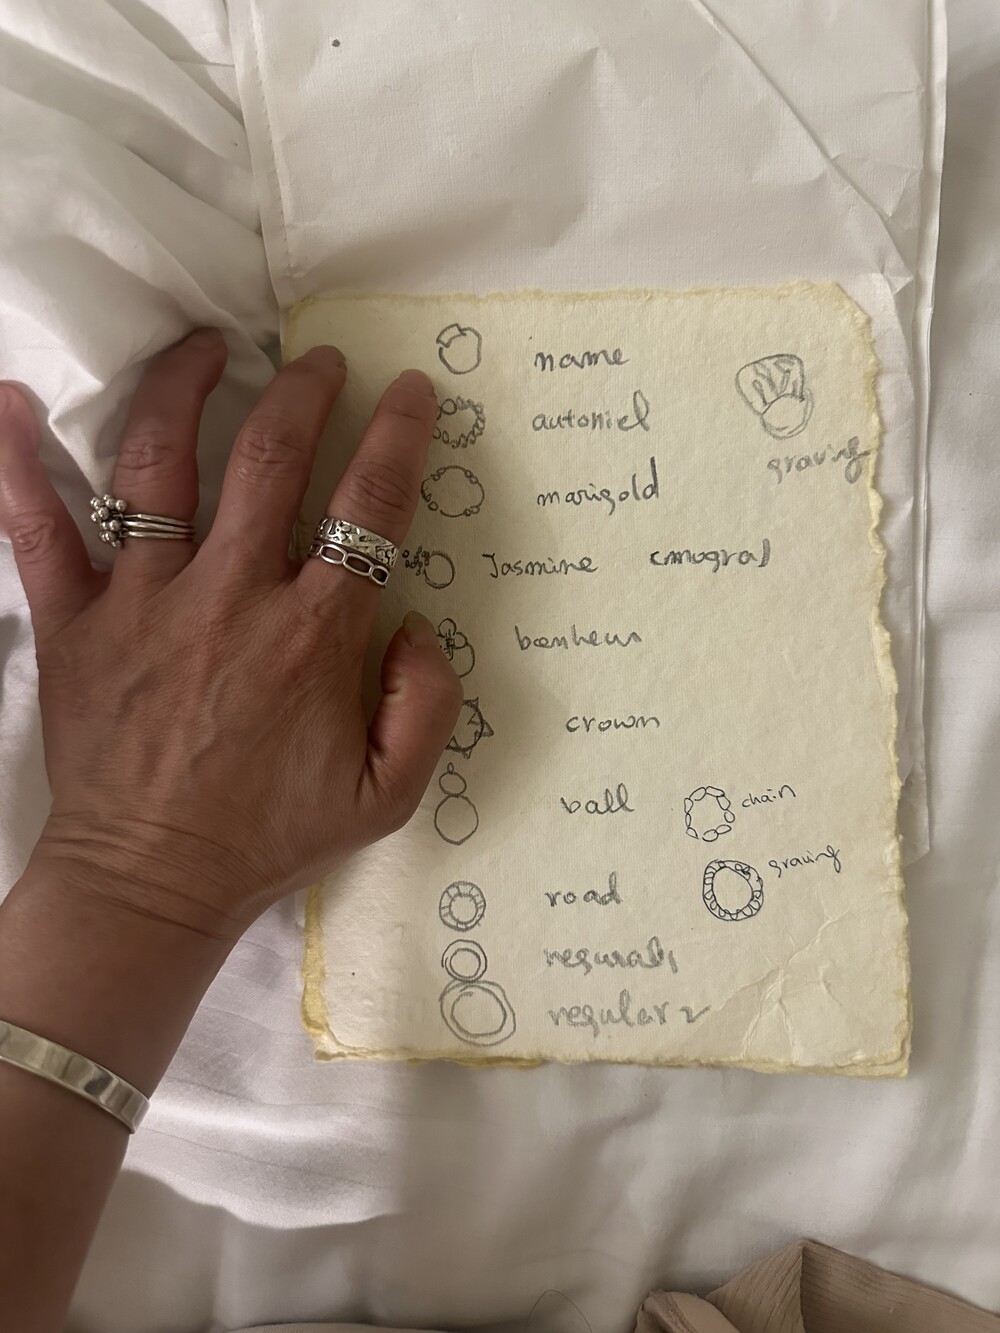 name
autoniel
graving
marigold
Jasmine
bonheur
crown
ball
chain
road
graving
regular 2